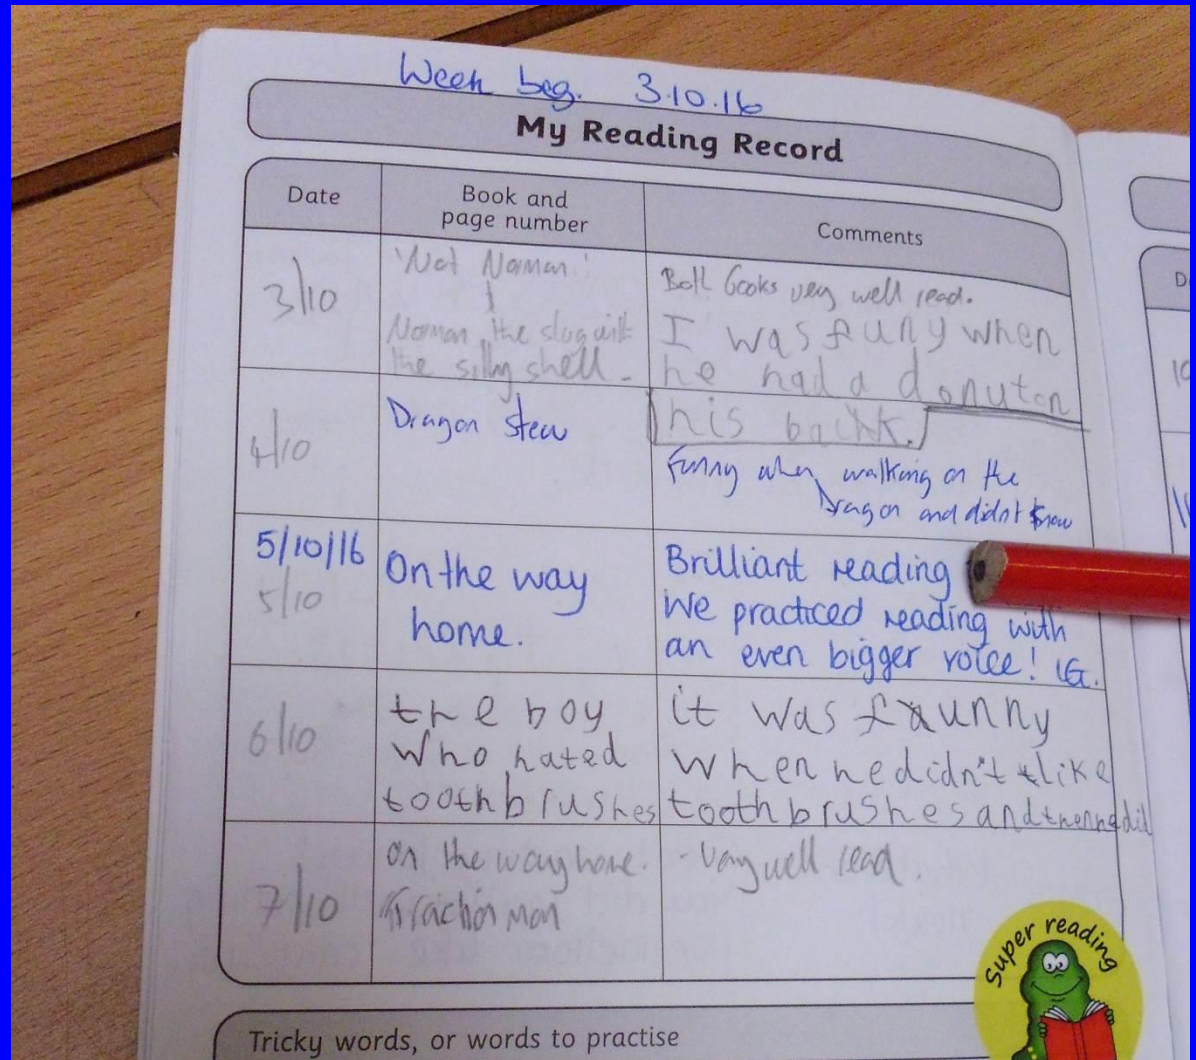 Week beg. 3.10.16
My Reading Record
Date
Book and
page number
Comments
3/10
'Not Norman'
Norman the slug with
the silly shell.
Both books very well read.
I was funy when
he had a donut on
his back.
4/10
Dragon Stew
Funny when walking on the
Dragon and didn't know
5/10/16
5/10
On the way
home.
Brilliant reading
We practiced reading with
an even bigger voice! LG.
6/10
the boy
who hated
toothbrushes
it was funny
when he didn't like
toothbrushes and then he did
7/10
on the way home.
Traction Man
- Very well read.
Super reading
Tricky words, or words to practise